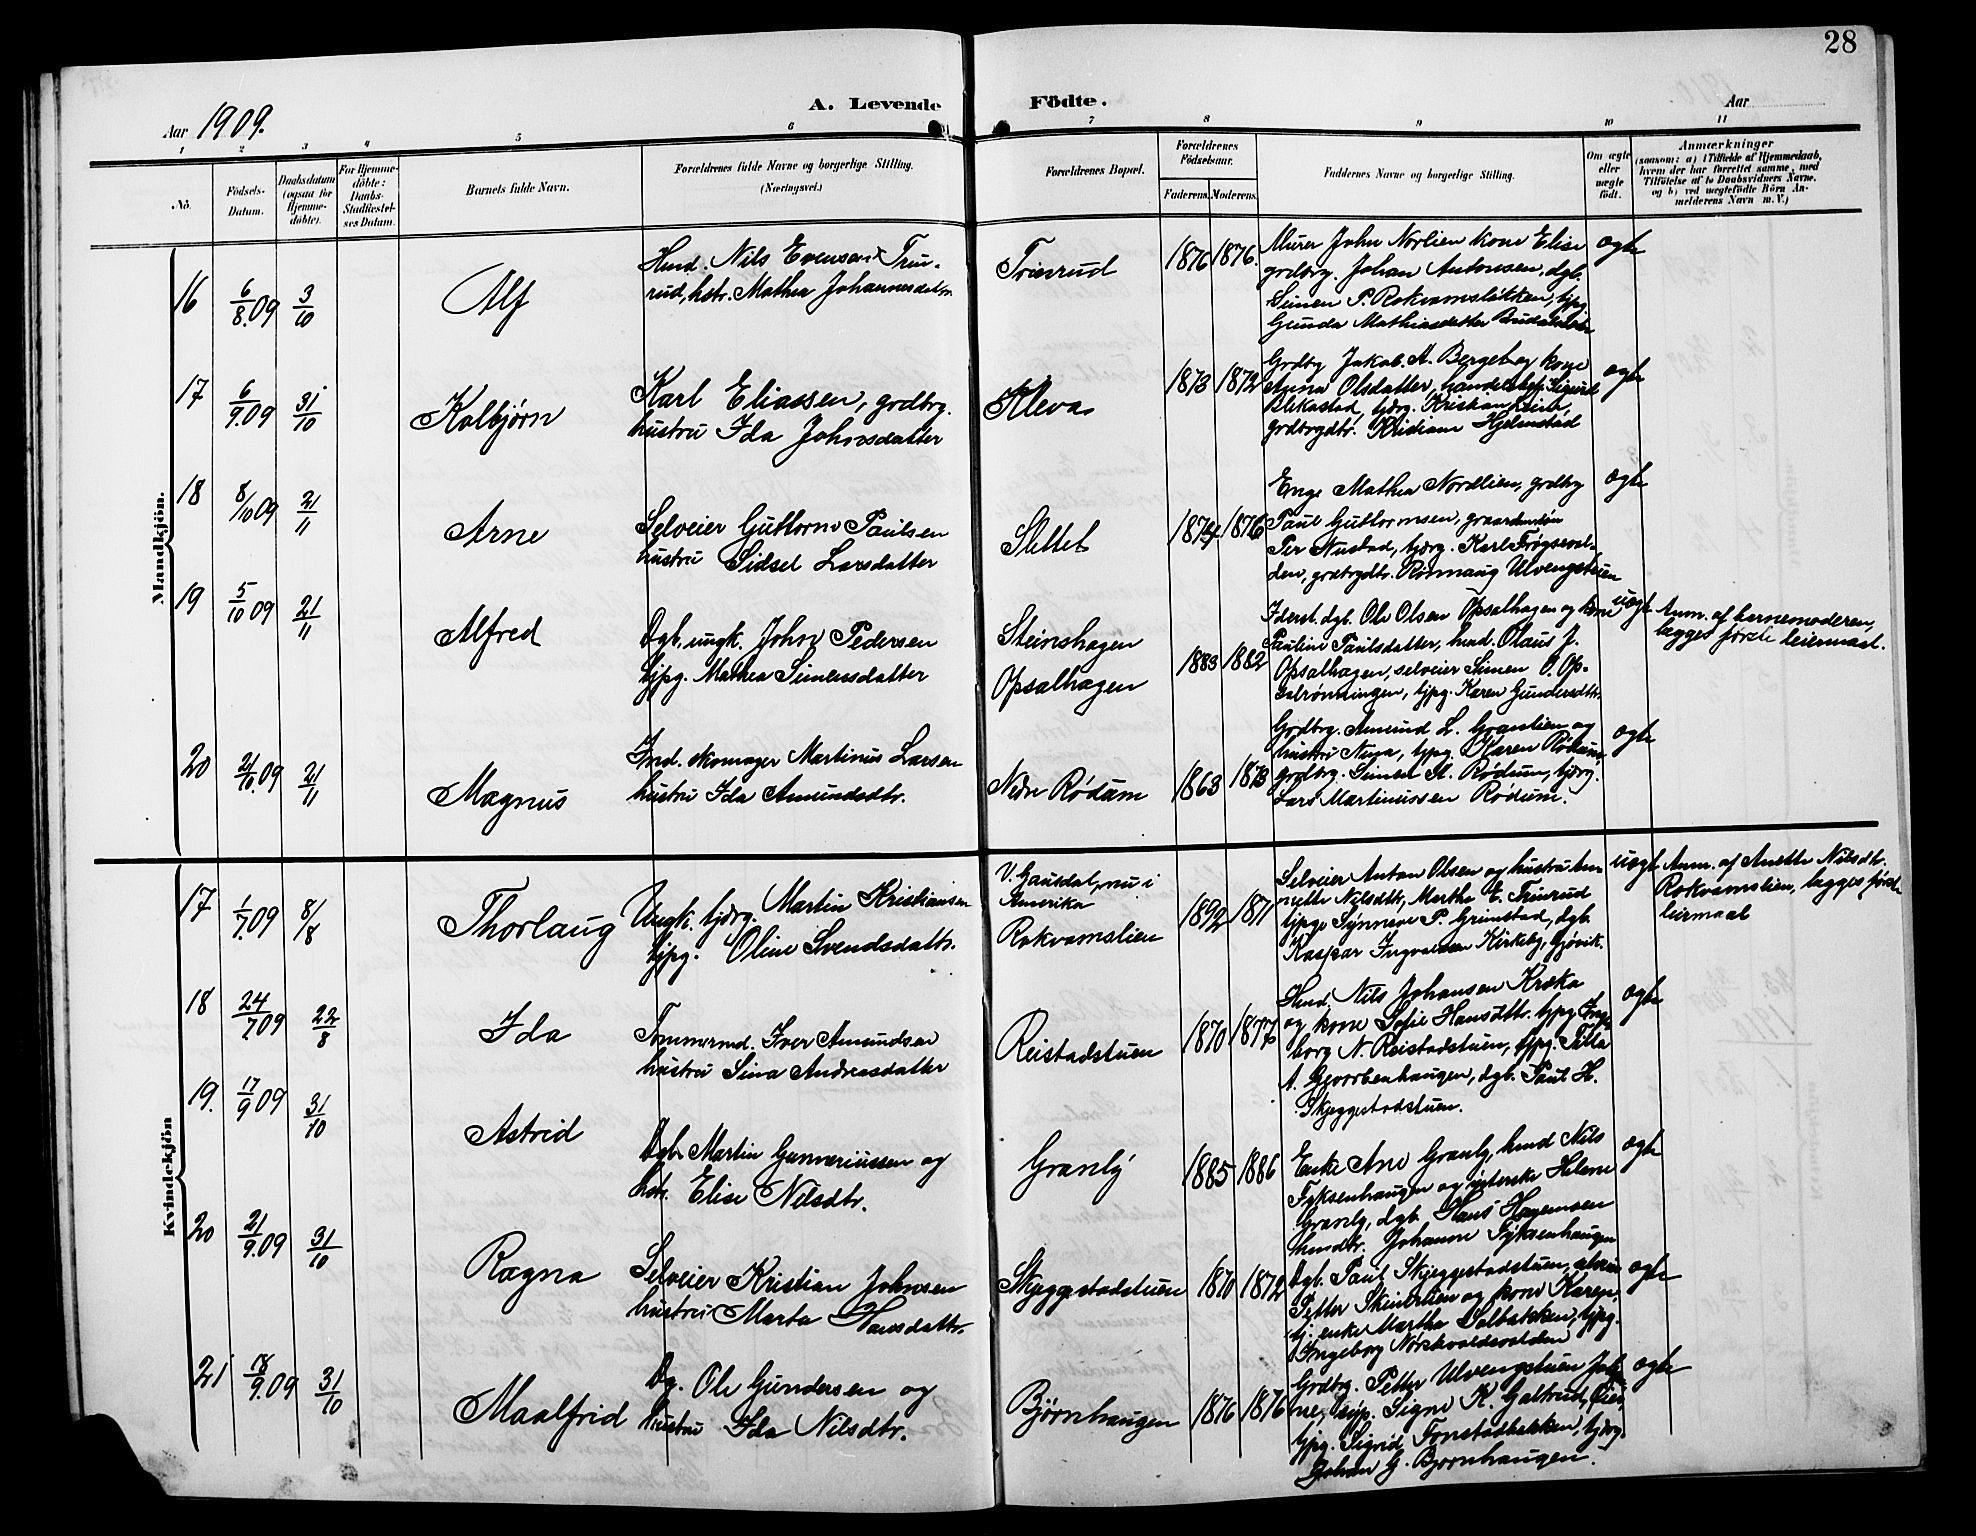 28
A. Levende Födte.
Aar 1909.
Aar
1 2 3 4 5 6 7 8 9 10 11
No.
Födsels-Datum.
Daabsdatum (ogsaa for Hjemme-döbte).
For Hjemme-döbte: Daabs-Stadfæstel-ses Datum.
Barnets fulde Navn.
Forældrenes fulde Navne og borgerlige Stilling. (Næringsvei.)
Forældrenes Bopæl.
Forældrenes Födselsaar.
Faderens. Moderens.
Faddernes Navne og borgerlige Stilling.
Om ægte eller uægte födt.
Anmærkninger
(saasom: a) i Tilfælde af Hjemmedaab,
hvem der har forrettet samme, med
Tilföielse af to Daabsvidners Navne,
og b) ved uægtefödte Börn An-
melderens Navn m. V.)
Mandkjön.
16 6/8.09 3/10 Alf
Hmd. Nils Evensen Trun-
rud, hstr. Mathea Johannesdatr
Trunrud
1876 1876.
Murer John Norlien kone Elise
grdbrg. Johan Antonsen, dgb.
Simen P. Rokvamsløkken, tjpg
Gunda Mathiasdatter
ægte
17 6/9.09 31/10 Kolbjørn
Karl Eliassen, grdbrg.
hustru Ida Johnsdatter
Kleva
1873 1872
Grdbrg Jakob A. Berget og kone
Anna Olsdatter, handelsbetj. Sigurd
Blikastad, tjdrg. Kristian
grdbrgdtr. Kristiane Hjelmstad
ægte
18 8/10 09 21/11 Arne
Selveier Guttorm Paulsen
hustru Sidsel Larsdatter
Slettet
1874 1876
Enge Mathea Nordlien, grdbrg
Paul Guttormsen, graardmdsøn
Per Nustad, tjdrg. Karl Frøgsevol-
den, grdbrgdtr. Rønnaug Ulvengstuen
ægte
19 5/10 09 21/11 Alfred
Dgb. ungk. John Pedersen
tjpg. Mathea Simensdatter
Steinshagen
Opsalhagen
1883 1882
Iderst. dgb. Ole Olsen Opsalhagen og kone
Pauline Paulsdatter, hmd. Olaus J.
Opsalhagen, selveier Simen O. Op-
salrønningen, tjpg. Karen Gundersdtr.
uægte
Anm. af barnemoderen,
begges første leiermaal.
20 21/10.09 21/11 Magnus
Ind. skomager Martinus Larsen
hustru Ida Amundsdtr.
Nedre Rødum
1863 1873
Grdbrg. Amund L. Granlien og
hustru Nina, tjpg. Karen Rødum,
grdbrg. Simen A. Rødum, tjdrg.
Lars Martinussen Rødum.
ægte
Kvindekjön
17 1/7.09 8/8 Thorlaug
Ungk. tjdrg. Martin Kristiansen
tjpg. Oline Svendsdattr.
V. Gausdal, nu i
Amerika
Rokvamslien
1892 1871
Selveier Anton Olsen og hustru An-
nette Nilsdtr, Marthe E. Trunrud
tjpge Synnøve P. Grimstad, dgb.
Kaspar Ingvaldsen Kirkeby, Gjøvik.
uægte
Anm. af Anette Nilsdtr.
Rokvamslien, begges første
leiermaal
18 24/7 09 22/8 Ida
Tømmermd. Iver Amundsen
hustru Sina Andreasdatter
Reistadstuen
1870 1877
Hmd. Nils Johansen Kræka
og kone Sofie Hansdtr. tjpg Inge-
borg N. Reistadstuen, tjpg. Tilla
A. Gjvorbenhaugen, dgb. Paul H.
Skjeggestadstuen.
ægte
19. 17/9 09 31/10 Astrid
Dgb. Martin Gunneriussen og
hstr. Elise Nilsdtr.
Granly
1885 1886
Enke Ane Granly, hmd Nils
Fyksenhaugen og sypike Helene
Granly, dgb. Hans Hagensen
hmdtr. Johanne Fyksenhaugen
ægte
20 21/9.09 31/10 Ragna
Selveier Kristian Johnsen
hustru Marta Hansdattr.
Skjeggestadstuen
1870 1872
Dgb. Paul Skjeggestadstuen, selveier
Petter Skinerlien og kone Karen,
tj. enke Martha Solbakken, tjpg.
Ingeborg Nørstvoldsvolden
ægte
21 18/9.09 31/10 Maalfrid
Dg. Ole Gundersen og
hustru Ida Nilsdtr.
Bjørnhaugen
1876 1876
Grdbrg. Petter Ulvengstuen
Signe K. Galtrud,
tjpg. Sigrid Fonstadbakken, tjdrg
Johan G. Bjørnhaugen.
ægte